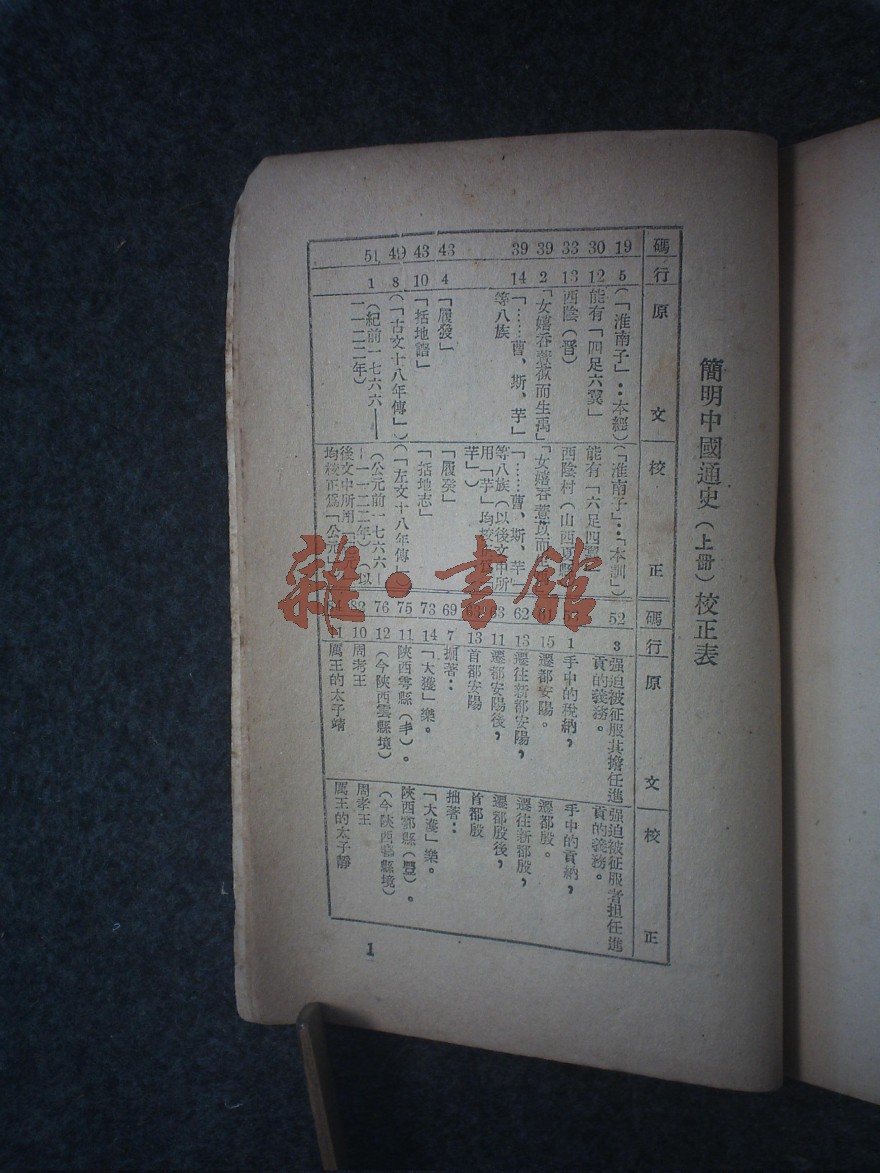 簡明中國通史（上冊）校正表
碼 行 原文 校正
19 5 （「淮南子」：本經） （「淮南子」：「本訓」）
30 12 能有「四足六翼」 能有「六足四翼」
33 13 西陰（晉） 西陰村（山西夏縣）
39 2 「女嬉吞薏苡而生禹」 「女嬉吞薏苡而
39 14 「……曹、斯、芋」
等八族
「……曹、斯、羋」
等八族（以後文中所
用「芋」均校
羋」）
43 4 「履發」 「履癸」
43 10 「括地譜」 「括地志」
49 8 （「古文十八年傳」） （「左文十八年傳」）
51 1 （紀前一七六六——
一一二二年）
（公元前一七六六—
—一一二二年）（以
後文中所用「
均校正爲「公元」
碼 行 原文 校正
52 3 强迫被征服其擔任進
貢的義務。
强迫被征服者担任進
貢的義務。
1 手中的稅納， 手中的貢納，
61 15 遷都安陽。 遷都殷。
62 13 遷往新都安陽， 遷往新都殷，
63 11 遷都安陽後， 遷都殷後，
13 首都安陽 首都殷
69 7 掤著： 拙著：
73 14 「大濩」樂。 「大濩」樂。
75 11 陜西雩縣（丰）。 陜西鄠縣（豐）。
76 12 （今陜西雲縣境） （今陜西鄠縣境）
82 10 周考王 周孝王
11 厲王的太子靖 厲王的太子靜
1
雜·書館